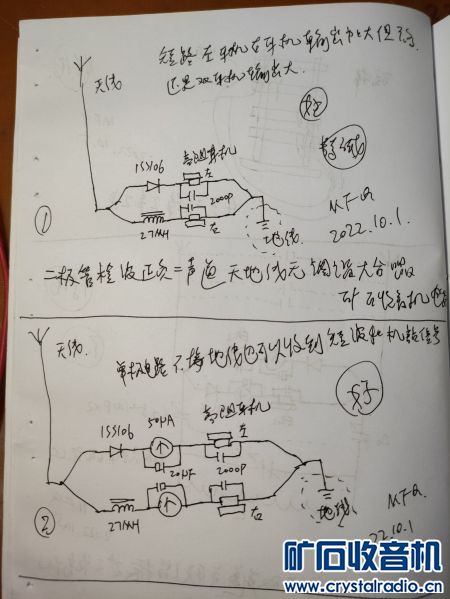 短路左耳机右耳机单输出也大但不
还是双耳机输出大
天线
好
高阻耳机
左
1SS106
2000P
①
27MH
右
地线
M F Q
2022.10.1.
二极管检波正负二声道天地线无调谐大
矿石收音机
天线
单机电路不接地线也可以收到短波
好
高阻耳机
左
50MA
1SS106
20MF
2000P
②
27MH
右
地线
M F Q
22.10.1
矿石收音机
www.crystalradio.cn